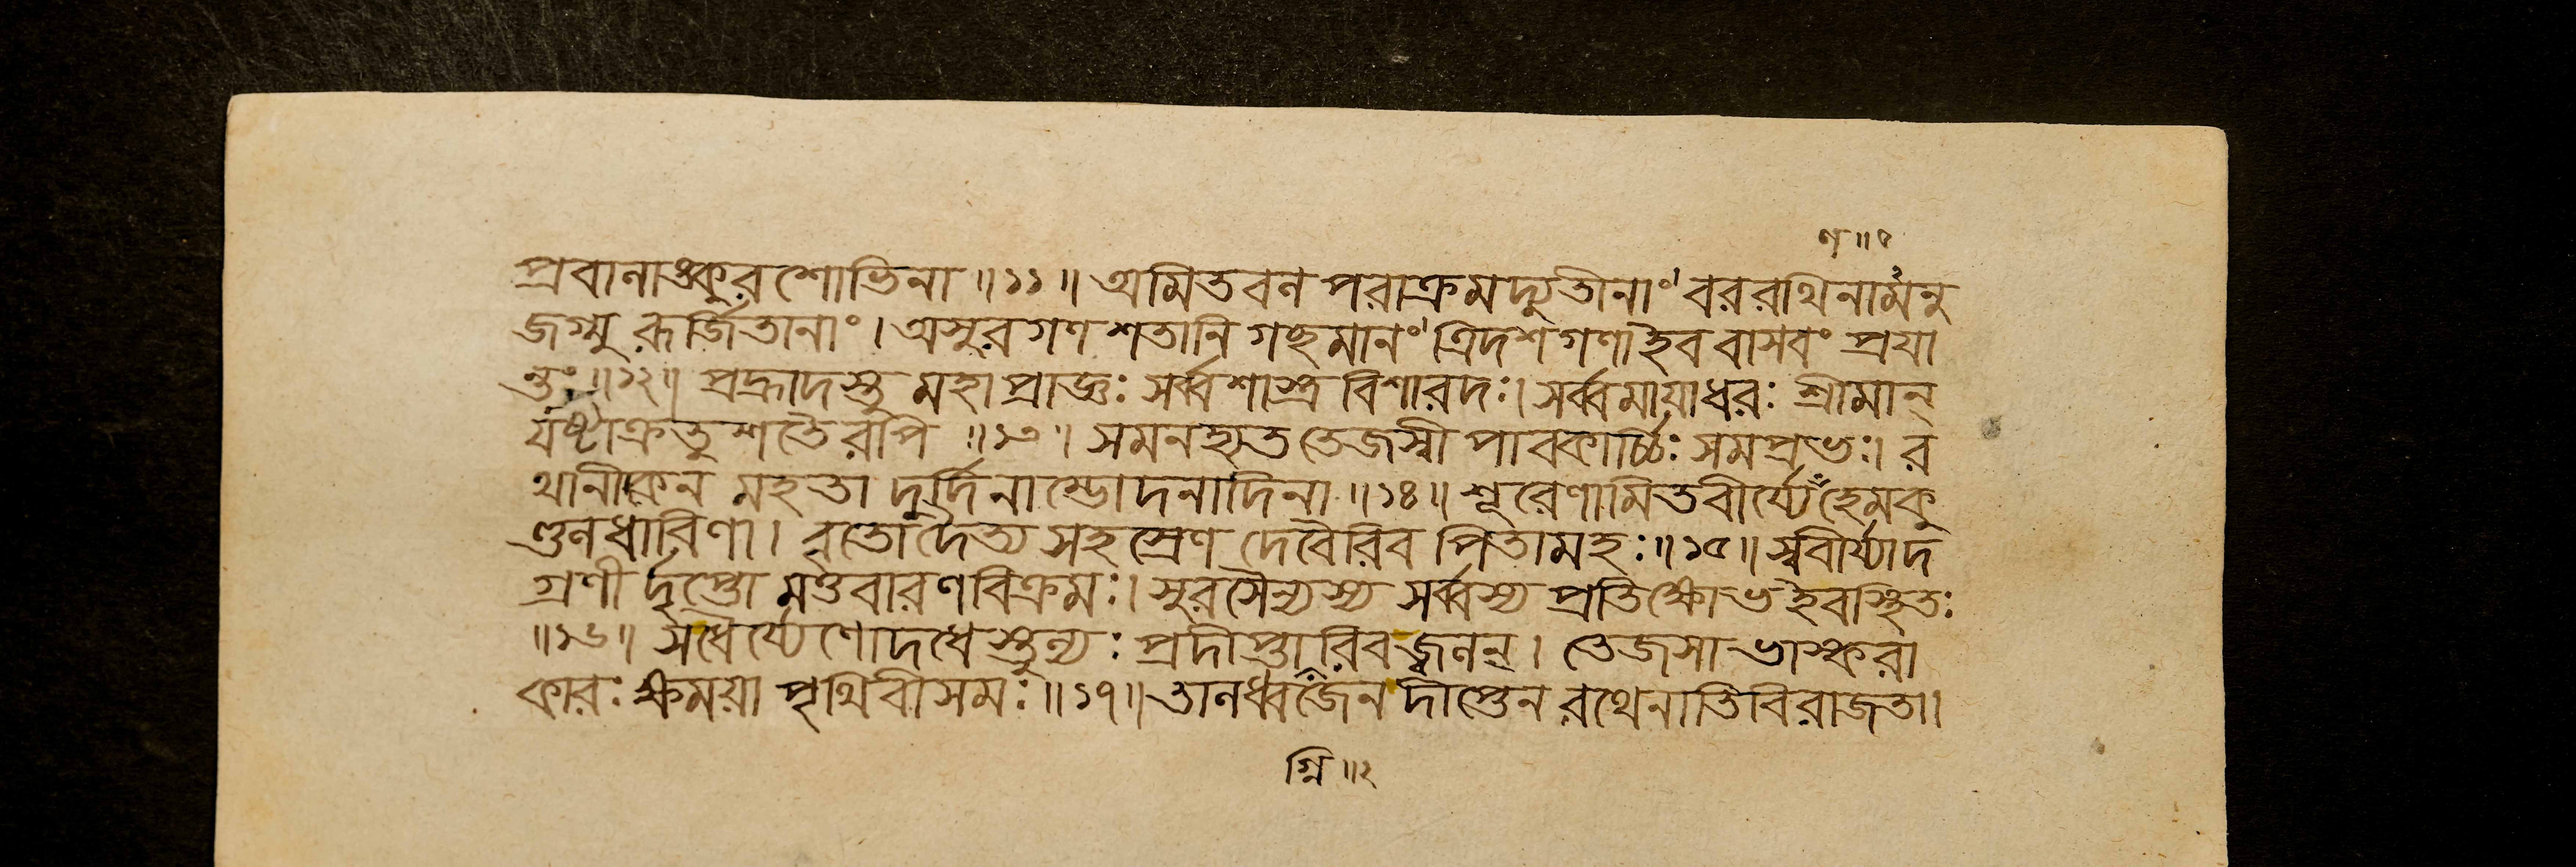 ণ॥৫
প্রবানাঙ্কুরশোভিনা॥১১॥অমিতবন পরাক্রমদ্যুতীনাং'বররথিনামনু
জগ্মুরূর্জিতানাং।অসুরগণ শতানি গচ্ছমানং'ত্রিদশগণাইব বাসবং প্রযা
ন্তং॥১২॥ প্রহ্রাদস্তু মহাপ্রাজ্ঞঃ সর্ব্বশাস্ত্র বিশারদঃ।সর্ব্বমায়াধরঃ শ্রীমান্
যষ্টাক্রতুশতৈরপি ॥১৩। সমনহ্যত তেজস্বী পাবকার্চ্চিঃ সমপ্রভঃ। র
থানীকেন মহতা দুর্দিনাম্ভোদনাদিনা॥১৪॥ শূরেণামিতবীর্য্যেহেমকু
ণ্ডনধারিণা। বৃতোদৈত্য সহস্রেণ দেবৈরিব পিতামহঃ॥১৫॥স্ববীর্য্যাদ
গ্রণীর্দৃপ্তো মত্তবারণবিক্রমঃ।সুরসৈন্যস্য সর্ব্বস্য প্রতিক্ষোভইবস্থিতঃ
॥১৬॥ সধৈর্য্যেণোদধেস্তুন্যঃ প্রদীপ্তারিবজ্বনন্। তেজসা ভাস্করা
কারঃ ক্ষময়া পৃথিবীসমঃ॥১৭॥তানধ্বজেন দীপ্তেন রথেনাতিবিরাজতা।
গ্নি॥২